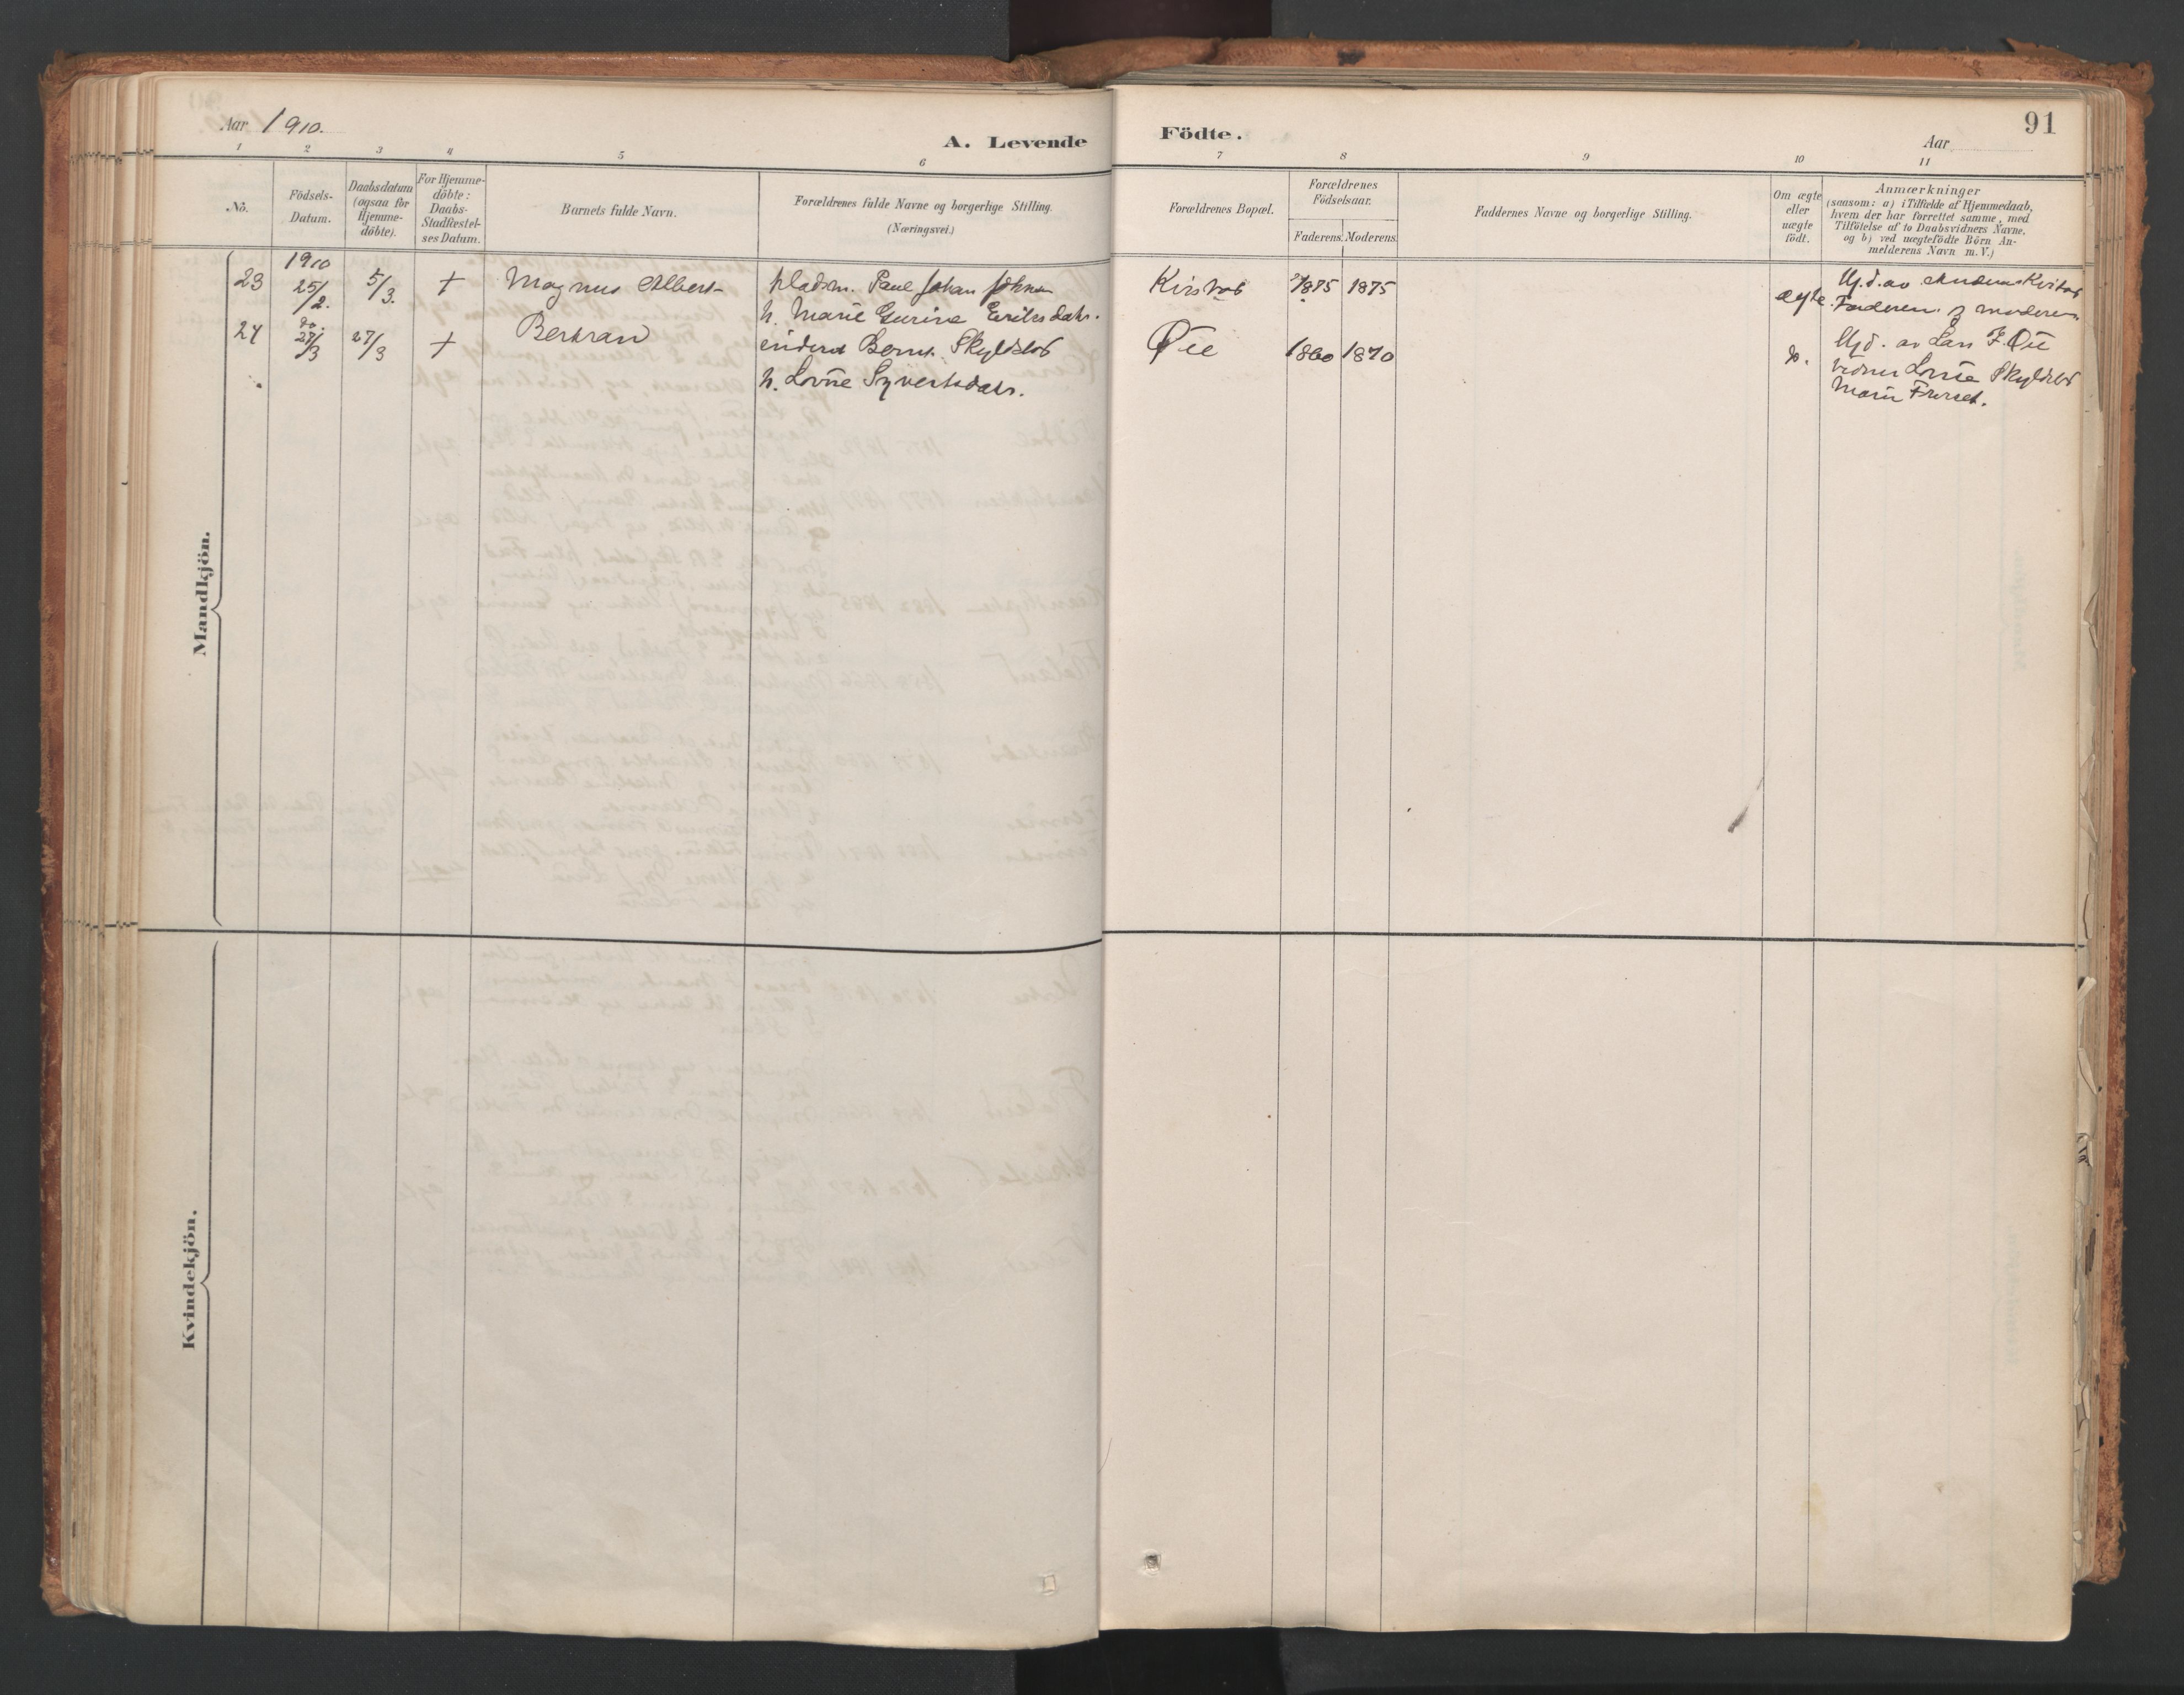 Aar 1910.
A. Levende Födte.
Aar
91
1 2 3 4 5 6 7 8 9 10 11
No.
Födsels-Datum.
Daabsdatum (ogsaa for Hjemme-döbte).
For Hjemme-döbte: Daabs-Stadfæstel-ses Datum.
Barnets fulde Navn.
Forældrenes fulde Navne og borgerlige Stilling.
(Næringsvei.)
Forældrenes Bopæl.
Forældrenes Födselsaar.
Faderens. Moderens.
Faddernes Navne og borgerlige Stilling.
Om ægte eller uægte födt.
Anmærkninger
(saasom: a) i Tilfælde af Hjemmedaab,
hvem der har forrettet samme, med
Tilföielse af to Daabsvidners Navne,
og b) ved uægtefödte Börn An-
melderens Navn m. V.)
Mandkjön.
1910
23 25/2. 5/3. + Magnus Albert
pladsm. Paul Johan Johnsen
h. Marie Gurine Eriksdatr.
1875 1875
ægte.
Hj.d. av
Faderen og moderen.
24 do. 27/3 27/3 + Bertran
inderst Bernt Skyldstad
h. Lovise Syvertsdatr.
Øie 1860 1870 do.
Hj.d. av Lars F. Øie
Vidner Lovise Skyldstad
Marie
Kvindekjön.